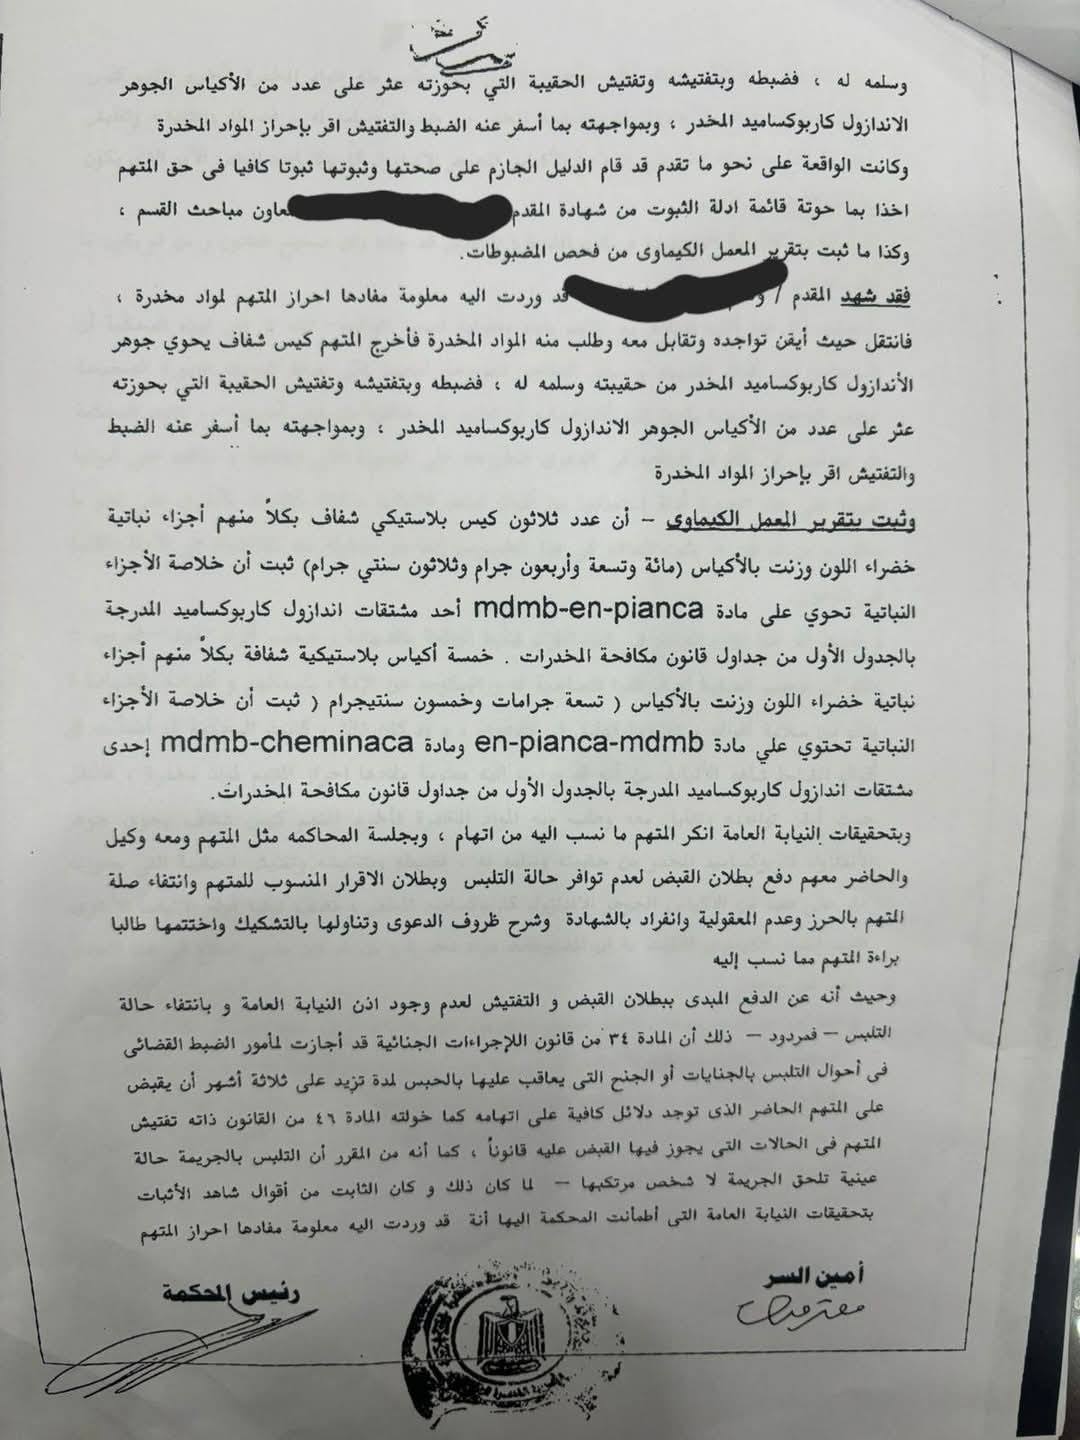 وسلمه له ، فضبطه وبتفتيشه وتفتيش الحقيبة التي بحوزته عثر على عدد من الأكياس الجوهر
الاندازول كاربوكساميد المخدر ، وبمواجهته بما أسفر عنه الضبط والتفتيش اقر بإحراز المواد المخدرة
وكانت الواقعة على نحو ما تقدم قد قام الدليل الجازم على صحتها وثبوتها ثبوتا كافيا فى حق المتهم
اخذا بما حوتة قائمة ادلة الثبوت من شهادة المقدم معاون مباحث القسم ،
وكذا ما ثبت بتقرير المعمل الكيماوى من فحص المضبوطات.
فقد شهد المقدم / قد وردت اليه معلومة مفادها احراز المتهم لمواد مخدرة ،
فانتقل حيث أيقن تواجده وتقابل معه وطلب منه المواد المخدرة فأخرج المتهم كيس شفاف يحوي جوهر
الأندازول كاربوكساميد المخدر من حقيبته وسلمه له ، فضبطه وبتفتيشه وتفتيش الحقيبة التي بحوزته
عثر على عدد من الأكياس الجوهر الاندازول كاربوكساميد المخدر ، وبمواجهته بما أسفر عنه الضبط
والتفتيش اقر بإحراز المواد المخدرة
وثبت بتقرير المعمل الكيماوى – أن عدد ثلاثون كيس بلاستيكي شفاف بكلاً منهم أجزاء نباتية
خضراء اللون وزنت بالأكياس (مائة وتسعة وأربعون جرام وثلاثون سنتي جرام) ثبت أن خلاصة الأجزاء
النباتية تحوي على مادة mdmb-en-pianca أحد مشتقات اندازول كاربوكساميد المدرجة
بالجدول الأول من جداول قانون مكافحة المخدرات . خمسة أكياس بلاستيكية شفافة بكلاً منهم أجزاء
نباتية خضراء اللون وزنت بالأكياس ( تسعة جرامات وخمسون سنتيجرام ( ثبت أن خلاصة الأجزاء
النباتية تحتوي علي مادة en-pianca-mdmb ومادة mdmb-cheminaca إحدى
مشتقات اندازول كاربوكساميد المدرجة بالجدول الأول من جداول قانون مكافحة المخدرات.
وبتحقيقات النيابة العامة انكر المتهم ما نسب اليه من اتهام ، وبجلسة المحاكمه مثل المتهم ومعه وكيل
والحاضر معهم دفع بطلان القبض لعدم توافر حالة التلبس وبطلان الاقرار المنسوب للمتهم وانتفاء صلة
المتهم بالحرز وعدم المعقولية وانفراد بالشهادة وشرح ظروف الدعوى وتناولها بالتشكيك واختتمها طالبا
براءة المتهم مما نسب إليه
وحيث أنه عن الدفع المبدى ببطلان القبض و التفتيش لعدم وجود اذن النيابة العامة و بانتفاء حالة
التلبس – فمردود – ذلك أن المادة ٣٤ من قانون اللإجراءات الجنائية قد أجازت لمأمور الضبط القضائى
فى أحوال التلبس بالجنايات أو الجنح التى يعاقب عليها بالحبس لمدة تزيد على ثلاثة أشهر أن يقبض
على المتهم الحاضر الذى توجد دلائل كافية على اتهامه كما خولته المادة ٤٦ من القانون ذاته تفتيش
المتهم فى الحالات التى يجوز فيها القبض عليه قانوناً ، كما أنه من المقرر أن التلبس بالجريمة حالة
عينية تلحق الجريمة لا شخص مرتكبها – لما كان ذلك و كان الثابت من أقوال شاهد الأثبات
بتحقيقات النيابة العامة التى أطمأنت المحكمة اليها أنة قد وردت اليه معلومة مفادها احراز المتهم
أمين السر
رئيس المحكمة